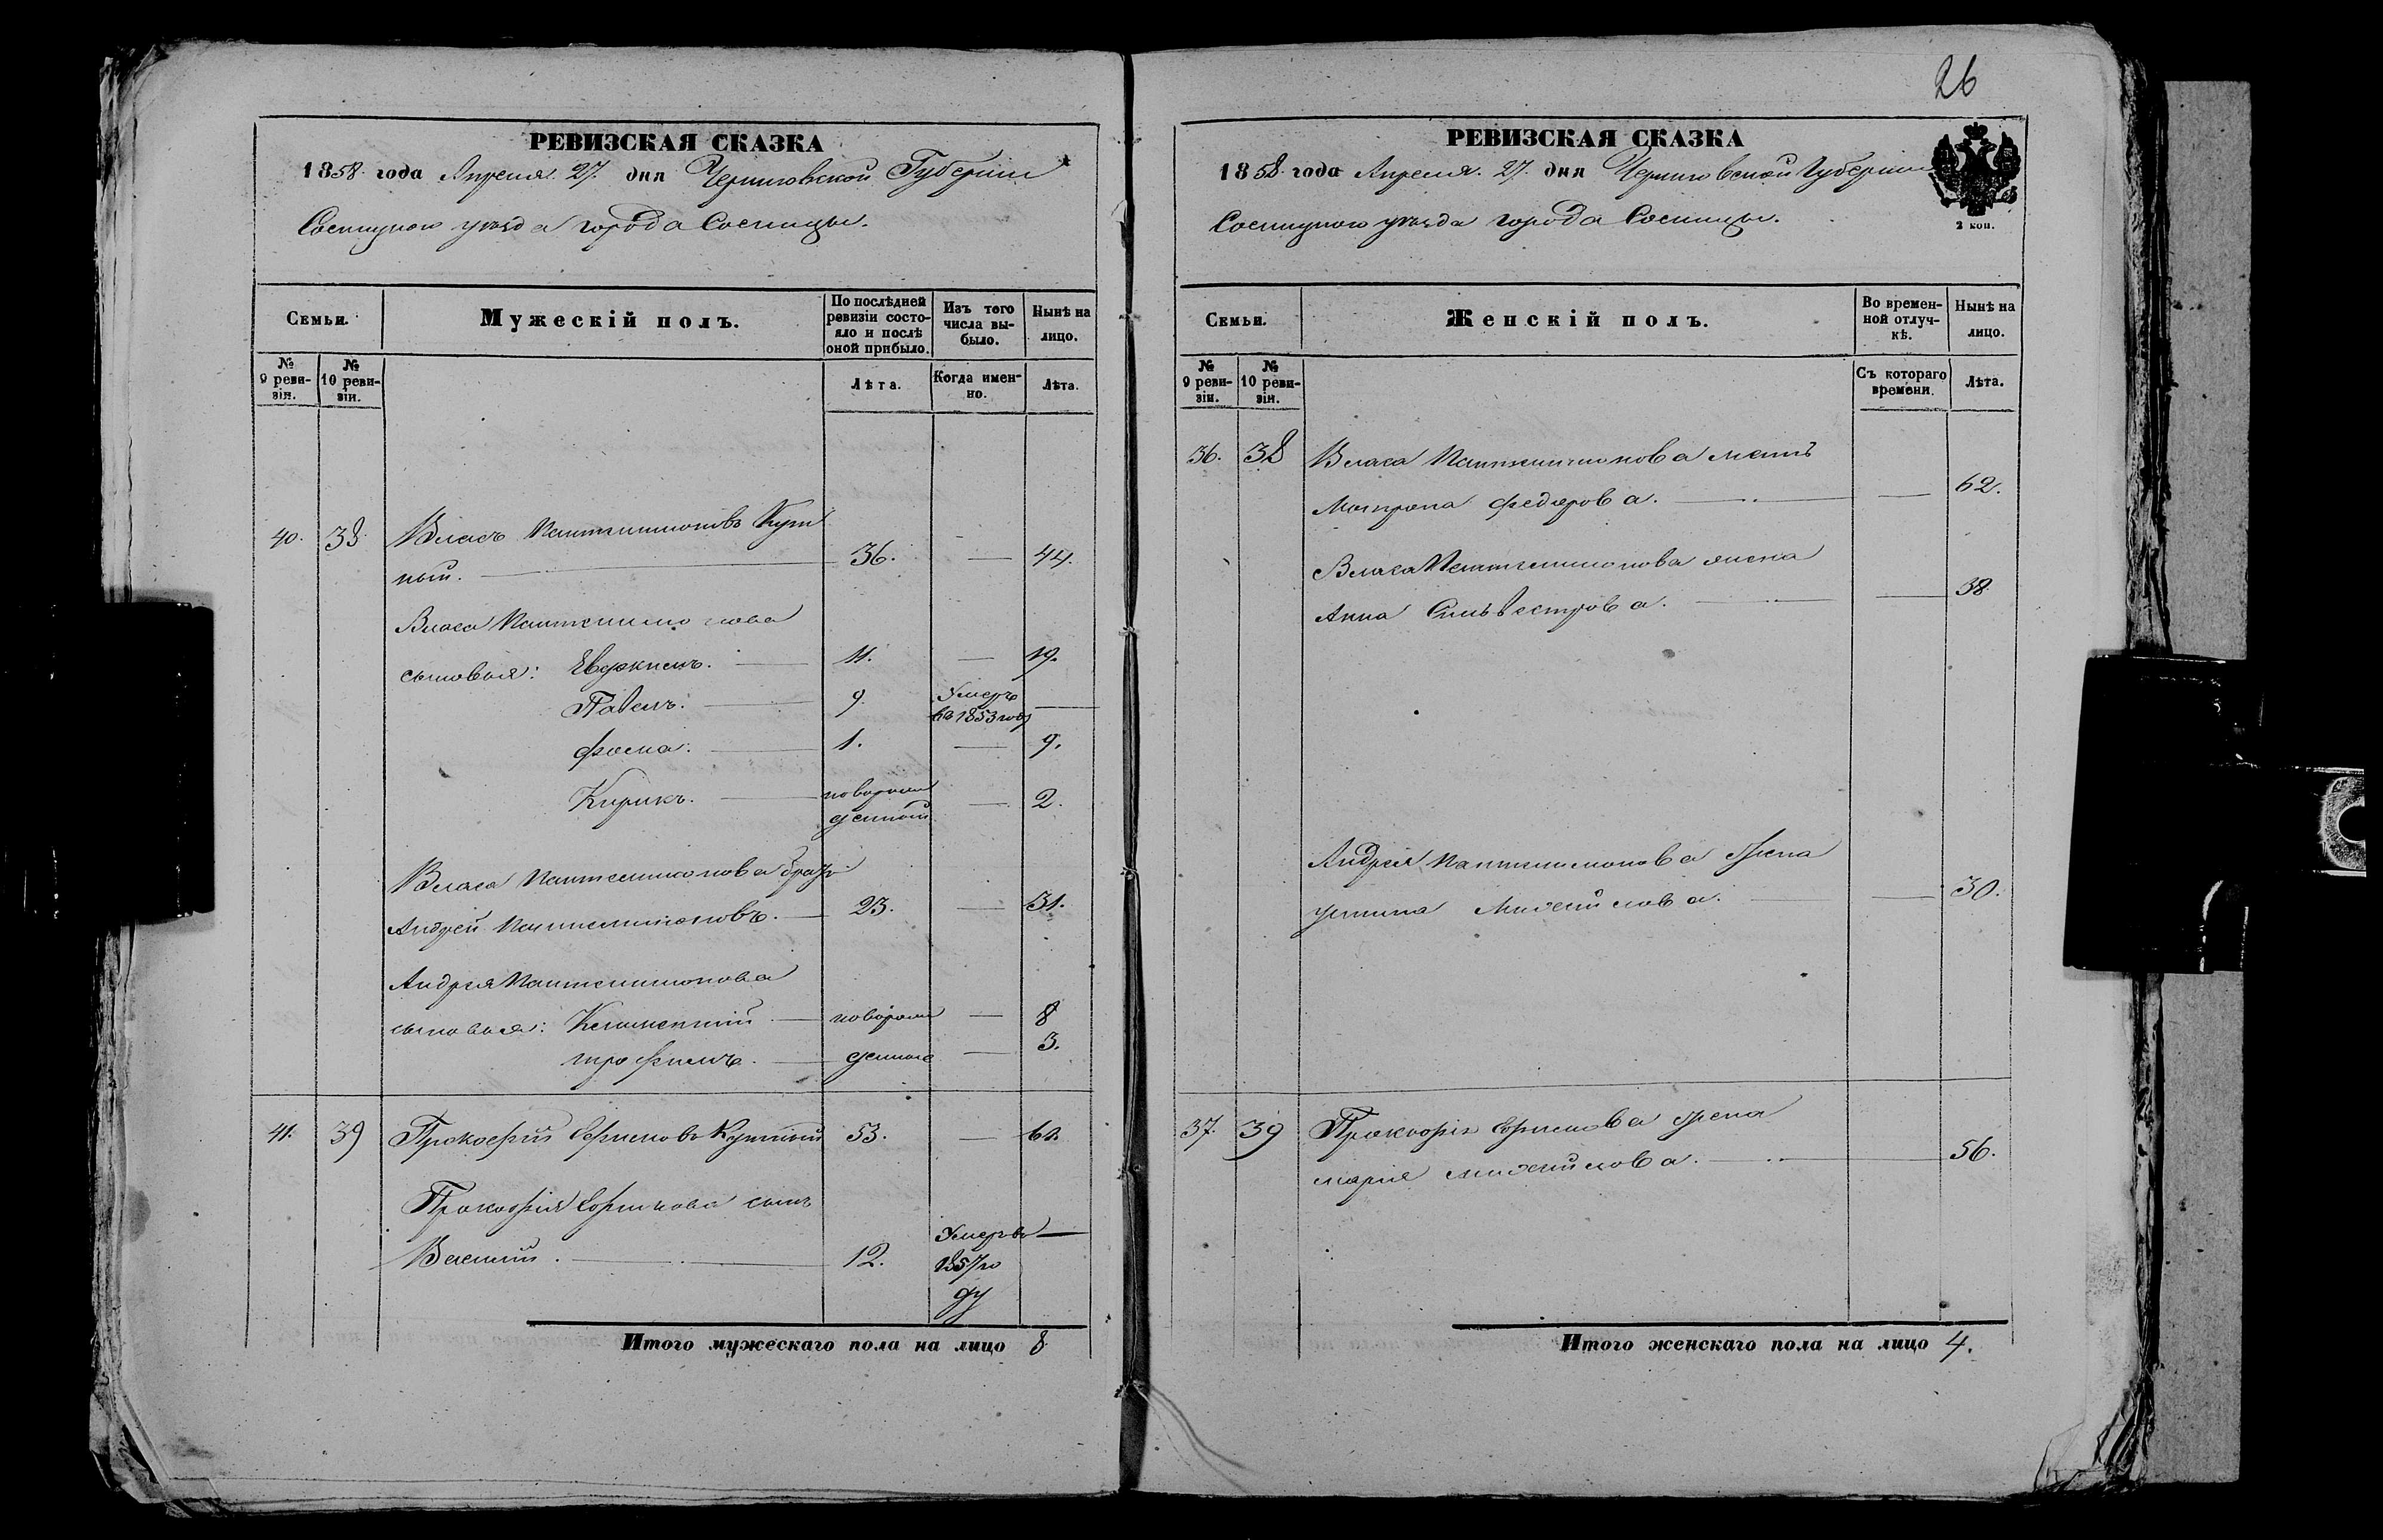 РЕВИЗСКАЯ СКАЗКА
1858 года Апреля 27. дня Черниговской Губернии
Сосницкого уезда города Сосницы.
Семьи.
Мужескій полъ.
По послѣдней ревизіи состо-
яло и послѣ оной прибыло.
Изъ того числа вы-
было.
Нынѣ на лицо.
№ 9 реви-
зіи.
№ 10 реви-
зіи.
Лѣта.
Когда имен-
но.
Лѣта.
40. 38. Власъ Пантелимоновъ Кут
ный. 36. — 44.
Власа Пантелимонова
сыновья: Евфимъ. 11. — 19.
Павелъ. 9. Умеръ въ 1853 году —
Фома. 1. — 9.
Кирикъ. новорож
денный — 2.
Власа Пантелимонова братъ
Андрей Пантелимоновъ. 23. — 31.
Андрея Пантелимонова
сыновья: Климентий — новорож — 8
трофимъ. — денные — 3.
41. 39 Прокофий Ефимовъ Кутный 53. — 61.
Прокофия Ефимова сынъ
Василий. 12. Умеръ въ —
1857 го
ду
Итого мужескаго пола на лицо 8
26
РЕВИЗСКАЯ СКАЗКА
1858 года Апреля. 27. дня Черниговской Губернии
Сосницкого уезда города Сосницы.
2 коп.
Семьи.
Женскій полъ.
Во времен-
ной отлуч-
кѣ.
Нынѣ на лицо.
№ 9 реви-
зіи.
№ 10 реви-
зіи.
Съ котораго времени.
Лѣта.
36. 38 Власа Пантелимонова мать
Матрона Федорова. — 62.
Власа Пантелимонова жена
Анна Сильвестрова. — 38.
Андрея Пантелимонова жена
устина Михайлова. — 30.
37. 39 Прокофия Ефимова жена
мария михайлова. — 56.
Итого женскаго пола на лицо 4.